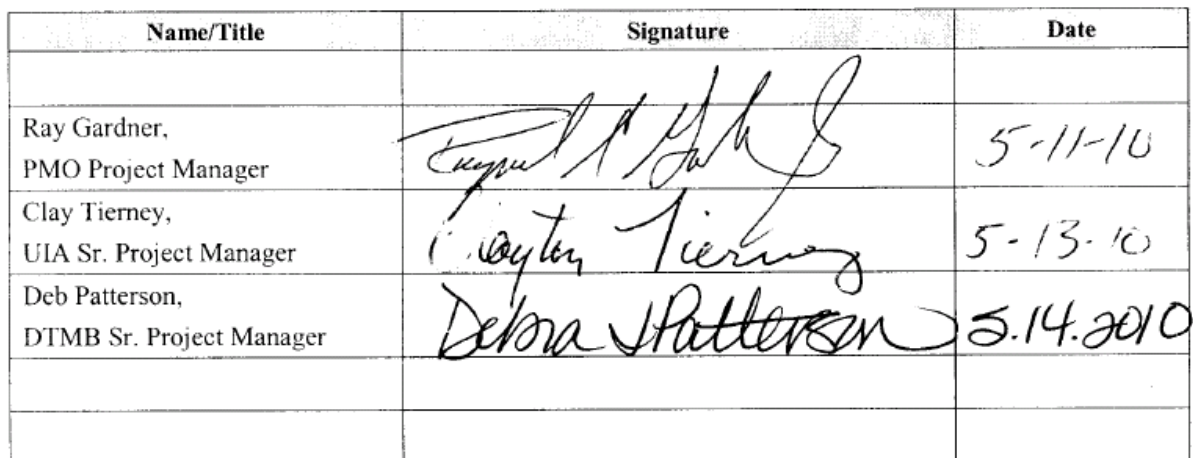 Name/Title Signature Date
Ray Gardner,
PMO Project Manager
5-11-10
Clay Tierney,
UIA Sr. Project Manager
Clayton Tierney
5-13-10
Deb Patterson,
DTMB Sr. Project Manager
Debra J Patterson
5.14.2010